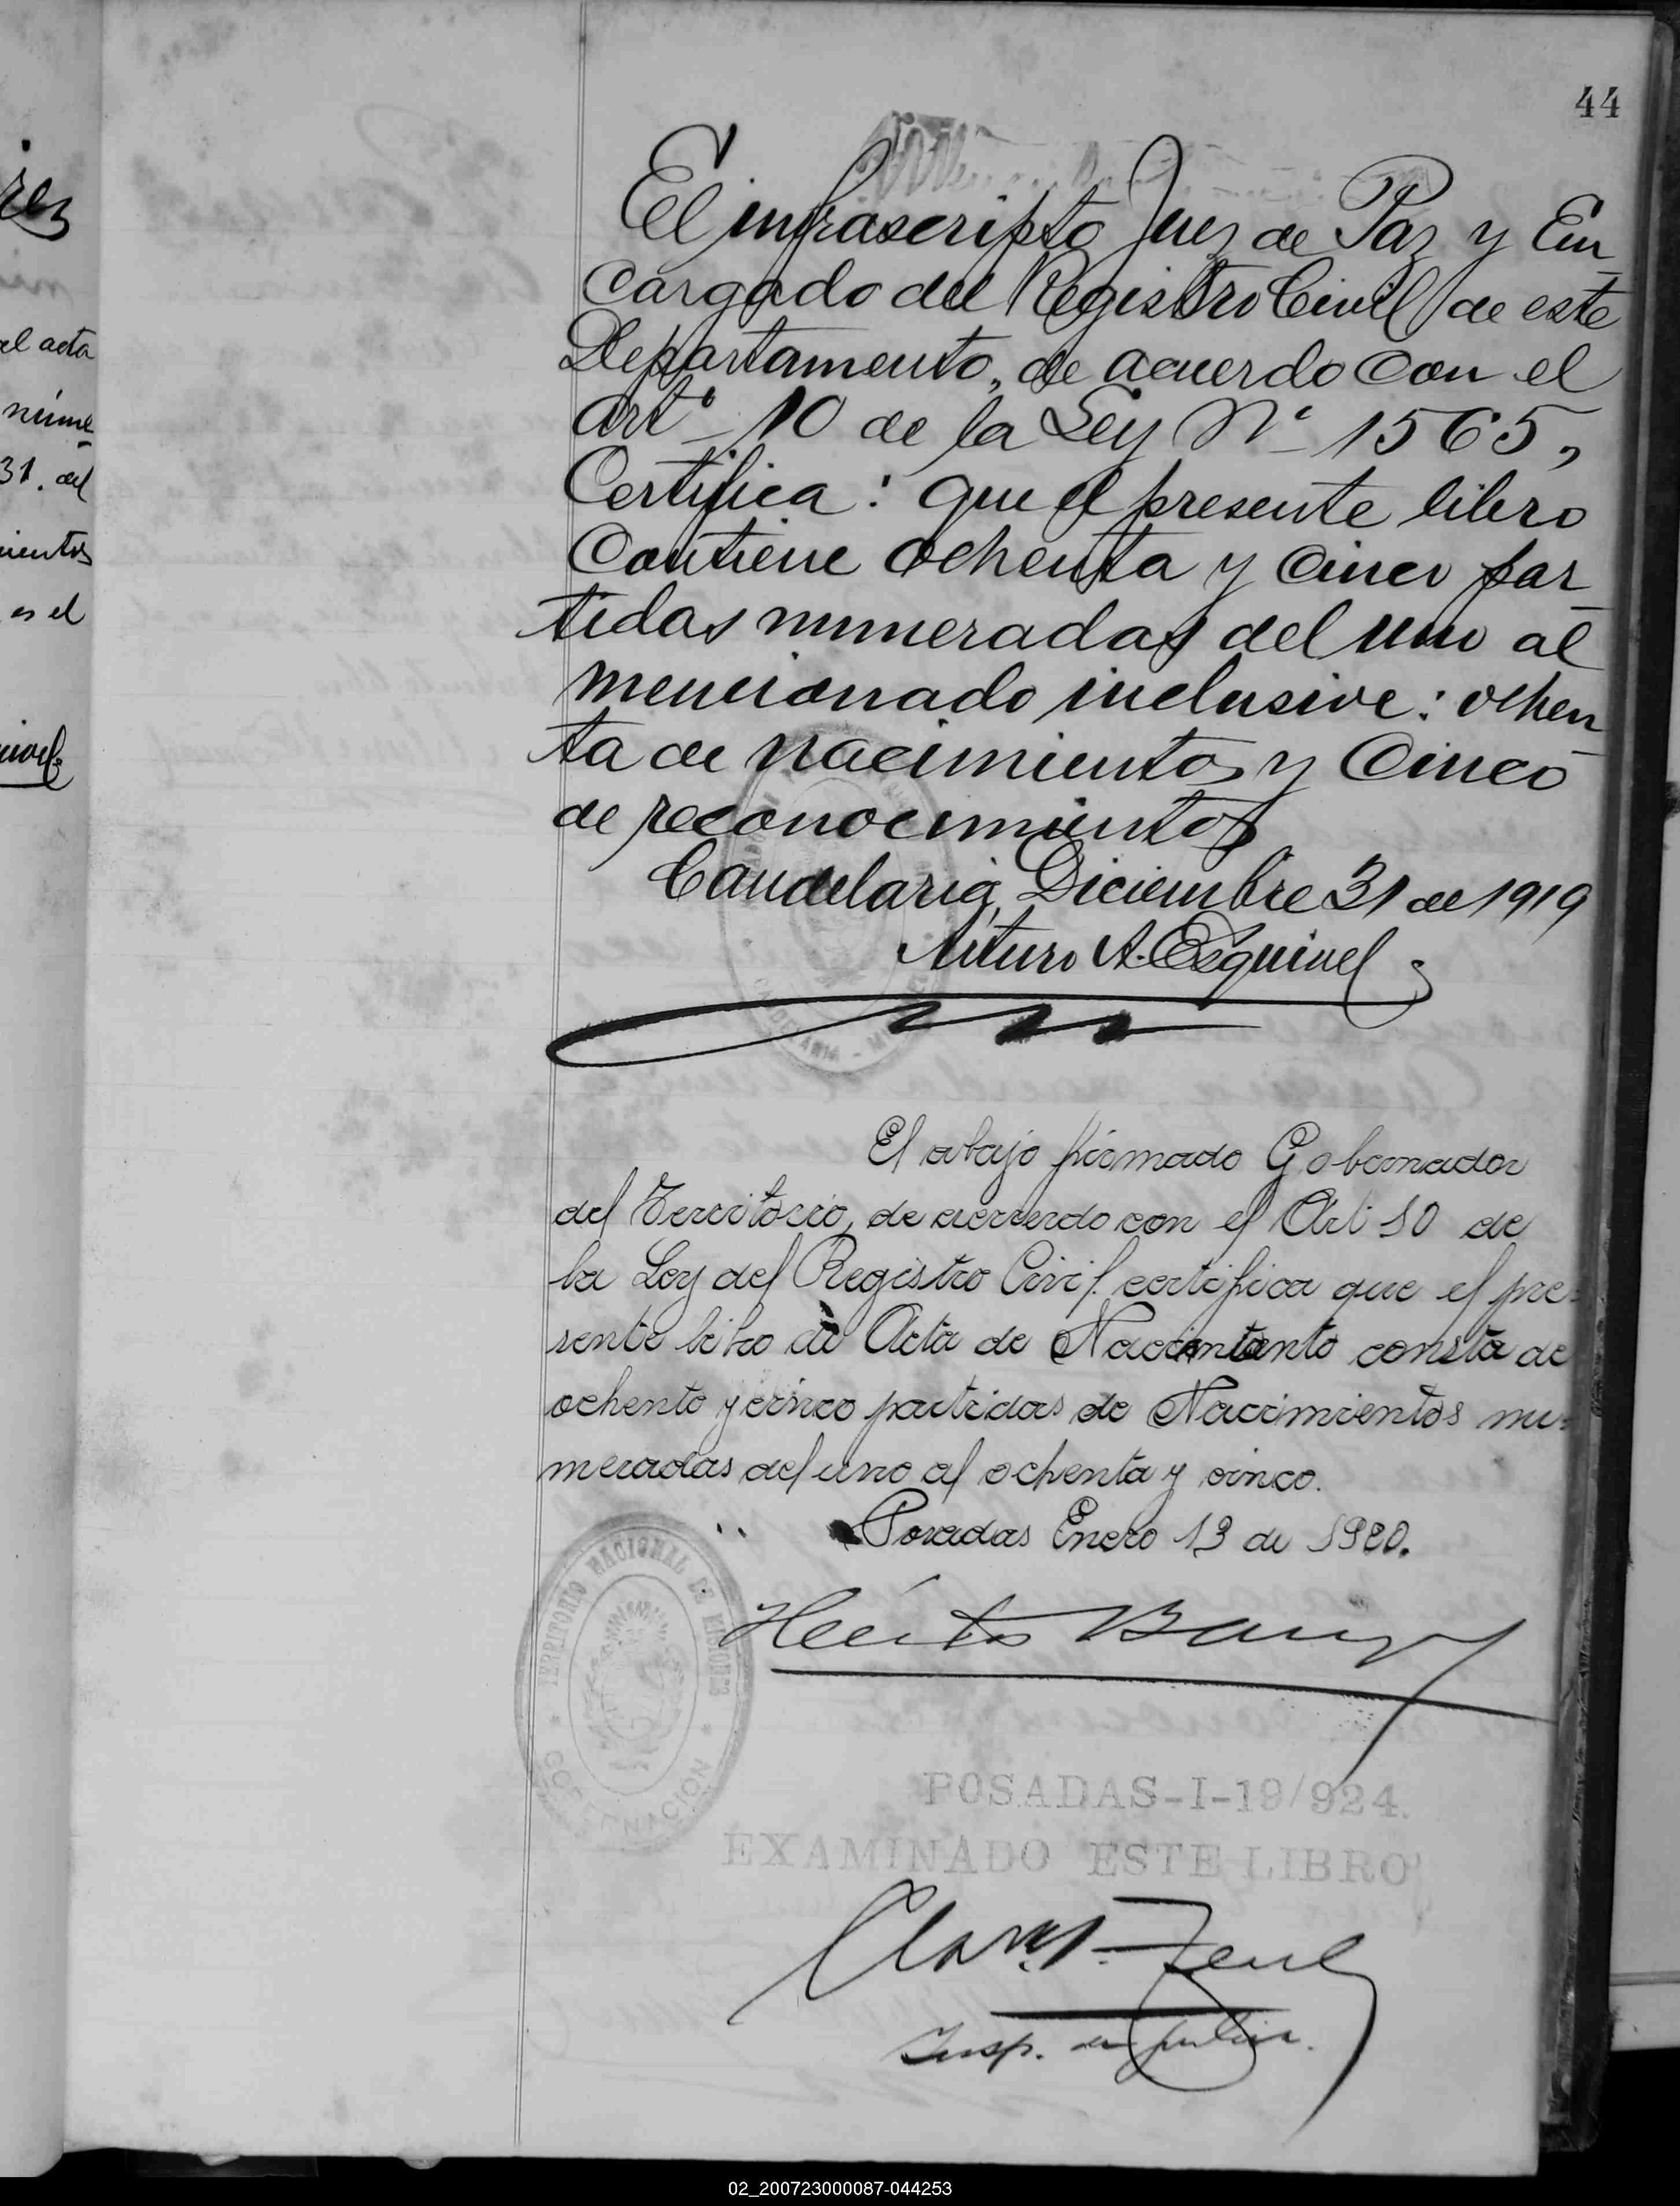 44
rez
el acta
núme
31. del
mientos
es el
uivel
El infrascripto Juez de Paz y En_
cargado del Registro Civil de este
Departamento, de acuerdo con el
artº 10 de la Ley Nº 1565,
Certifica: que el presente libro
Contiene ochenta y cinco par_
tidas numeradas del uno al
mencionado inclusive: ochen_
ta de nacimientos y Cinco
de reconocimientos
Candelaria, Diciembre 31 de 1919
Arturo A. Esquivel
El abajo firmado Gobernador
del Territorio, de acuerdo con el Art 10 de
la Ley del Registro Civil. certifica que el pre=
sente libro de Acta de Nacimiento consta de
ochento y cinco partidas de Nacimientos nu=
meradas del uno al ochenta y cinco.
Posadas Enero 13 de 1920.
TERRITORIO NACIONAL DE MISIONES
GOBERNACION
POSADAS-I-19/924.
EXAMINADO ESTE LIBRO
Insp. de
02_200723000087-044253